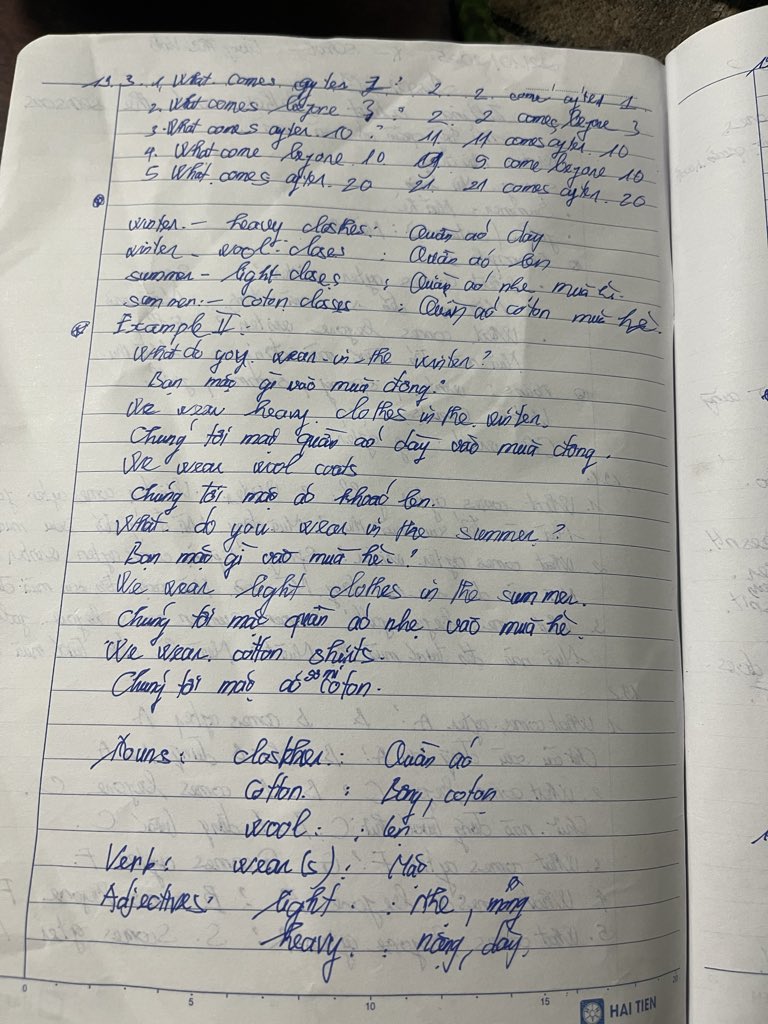 13.3. 1, What comes after 1? 2. 2 come after 1
2. What comes before 3? 2 2 comes before 3
3. What comes after 10? 11 11 comes after 10
4. What come before 10 9 9 come before 10
5 What comes after 20 21 21 comes after 20
winter - heavy clothes: Quần áo dày
winter - wool closes : Quần áo len
summer - light closes : Quần áo nhẹ mùa hè.
summer - coton closses : Quần áo coton mùa hè.
Example II:
What do you wear in the winter?
Bạn mặc gì vào mùa đông?
We wear heavy clothes in the winter.
Chúng tôi mặc quần áo dày vào mùa đông.
We wear wool coats
Chúng tôi mặc áo khoác len.
What do you wear in the summer?
Bạn mặc gì vào mùa hè?
We wear light clothes in the summer.
Chúng tôi mặc quần áo nhẹ vào mùa hè.
We wear cotton shirts.
Chúng tôi mặc áo sơ mi coton.
Nouns: : Quần áo
Cotton : Bông, coton
wool : len
Verb: wear(s): Mặc
Adjectives: light : nhẹ, mỏng
heavy : nặng, dày
0 5 10 15 20
HAI TIEN